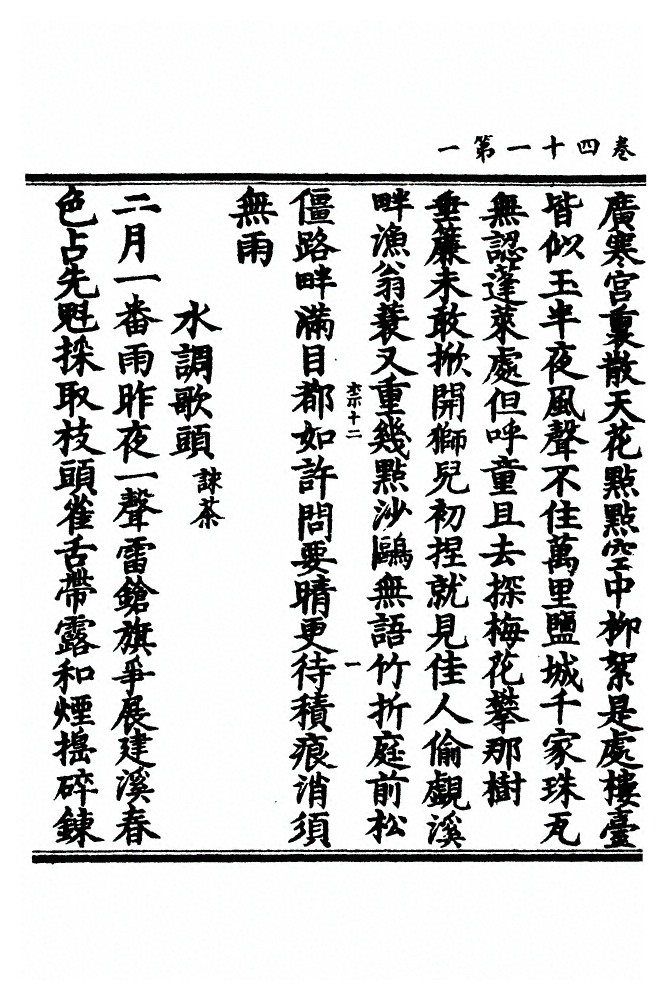 卷四十一第一
廣寒宮裏散天花點點空中柳絮是處樓臺
皆似玉半夜風聲不住萬里鹽城千家珠瓦
無認蓬萊處但呼童且去探梅花攀那樹
垂簾未敢掀開獅兒初捏就見佳人偷覷溪
畔漁翁蓑又重幾點沙鷗無語竹折庭前松
十二
一
僵路畔滿目都如許問要晴更待積痕消須
無雨
水調歌頭 詠茶
二月一番雨昨夜一聲雷鎗旗爭展建溪春
色占先魁採取枝頭雀舌帶露和煙搗碎鍊